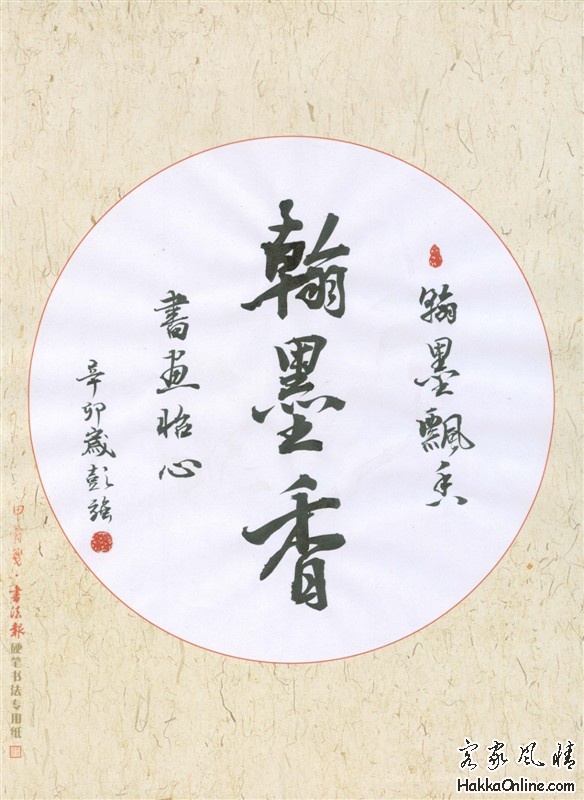 翰墨飘香
翰墨香
書画怡心
辛卯歲彭強
書法報
硬笔书法专用纸
客家风情
HakkaOnline.com